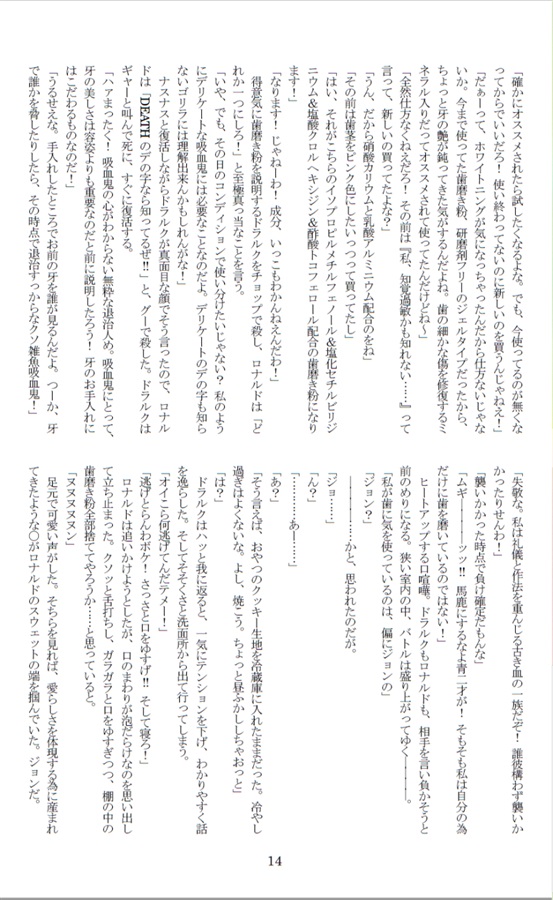 「確かにオススメされたら試したくなるよな。でも、今使ってるのが無くな
ってからでいいだろ！使い終わってないのに新しいの買うんじゃねえ！」
「だぁーって、ホワイトニングが気になっちゃったんだから仕方ないじゃな
いか。今まで使ってた歯磨き粉、研磨剤フリーのジェルタイプだったから、
ちょっと牙の艶が鈍ってきた気がするんだよね。歯の細かな傷を修復するミ
ネラル入りだってオススメされて使ってたんだけどね～」
「全然仕方なくねえだろ！その前は『私、知覚過敏かも知れない……』って
言って、新しいの買ってたよな？」
「うん、だから硝酸カリウムと乳酸アルミニウム配合のをね」
「その前は歯茎をピンク色にしたいっつって買ってたし」
「はい、それがこちらのイソプロピルメチルフェノール＆塩化セチルピリジ
ニウム＆塩酸クロルヘキシジン＆酢酸トコフェロール配合の歯磨き粉になり
ます！」
「なります！じゃねーわ！成分、いっこもわかんねえんだわ！」
得意気に歯磨き粉を説明するドラルクをチョップで殺し、ロナルドは「ど
れか一つにしろ！」と至極真っ当なことを言う。
「いや、でも、その日のコンディションで使い分けたいじゃない？私のよう
にデリケートな吸血鬼には必要なことなのだよ。デリケートのデの字も知ら
ないゴリラには理解出来んかもしれんがな！」
ナスナスと復活しながらドラルクが真面目な顔でそう言ったので、ロナル
ドは「DEATHのデの字なら知ってるぜ‼」と、グーで殺した。ドラルクは
ギャーと叫んで死に、すぐに復活する。
「ハァまったく！吸血鬼の心がわからない無粋な退治人め。吸血鬼にとって、
牙の美しさは容姿よりも重要なのだと前に説明したろう！牙のお手入れに
はこだわるものなのだ！」
「うるせえな。手入れしたところでお前の牙を誰が見るんだよ。つーか、牙
で誰かを脅したりしたら、その時点で退治すっからなクソ雑魚吸血鬼！」
「失敬な。私は礼儀と作法を重んじる古き血の一族だぞ！誰彼構わず襲いか
かったりせんわ！」
「襲いかかった時点で負け確定だもんな」
「ムギ————ッッ‼馬鹿にするなよ青二才が！そもそも私は自分の為
だけに歯を磨いているのではない！」
ヒートアップする口喧嘩。ドラルクもロナルドも、相手を言い負かそうと
前のめりになる。狭い室内の中、バトルは盛り上がってゆく————。
「私が歯に気を使っているのは、偏にジョンの」
「ジョン？」
————————かと、思われたのだが。
「ジョ……」
「ん？」
「…………あー……」
「あ？」
「そう言えば、おやつのクッキー生地を冷蔵庫に入れたままだった。冷やし
過ぎはよくないな。よし、焼こう。ちょっと昼ふかししちゃおっと」
「は？」
ドラルクはハッと我に返ると、一気にテンションを下げ、わかりやすく話
を逸らした。そしてそそくさと洗面所から出て行ってしまう。
「オイこら何逃げてんだテメー！」
「逃げとらんわボケ！さっさと口をゆすげ‼そして寝ろ！」
ロナルドは追いかけようとしたが、口のまわりが泡だらけなのを思い出し
て立ち止まった。クソッと舌打ちし、ガラガラと口をゆすぎつつ、棚の中の
歯磨き粉全部捨ててやろうか……と思っていると。
「ヌヌヌヌヌン」
足元で可愛い声がした。そちらを見れば、愛らしさを体現する為に産まれ
てきたような〇がロナルドのスウェットの端を掴んでいた。ジョンだ。
14